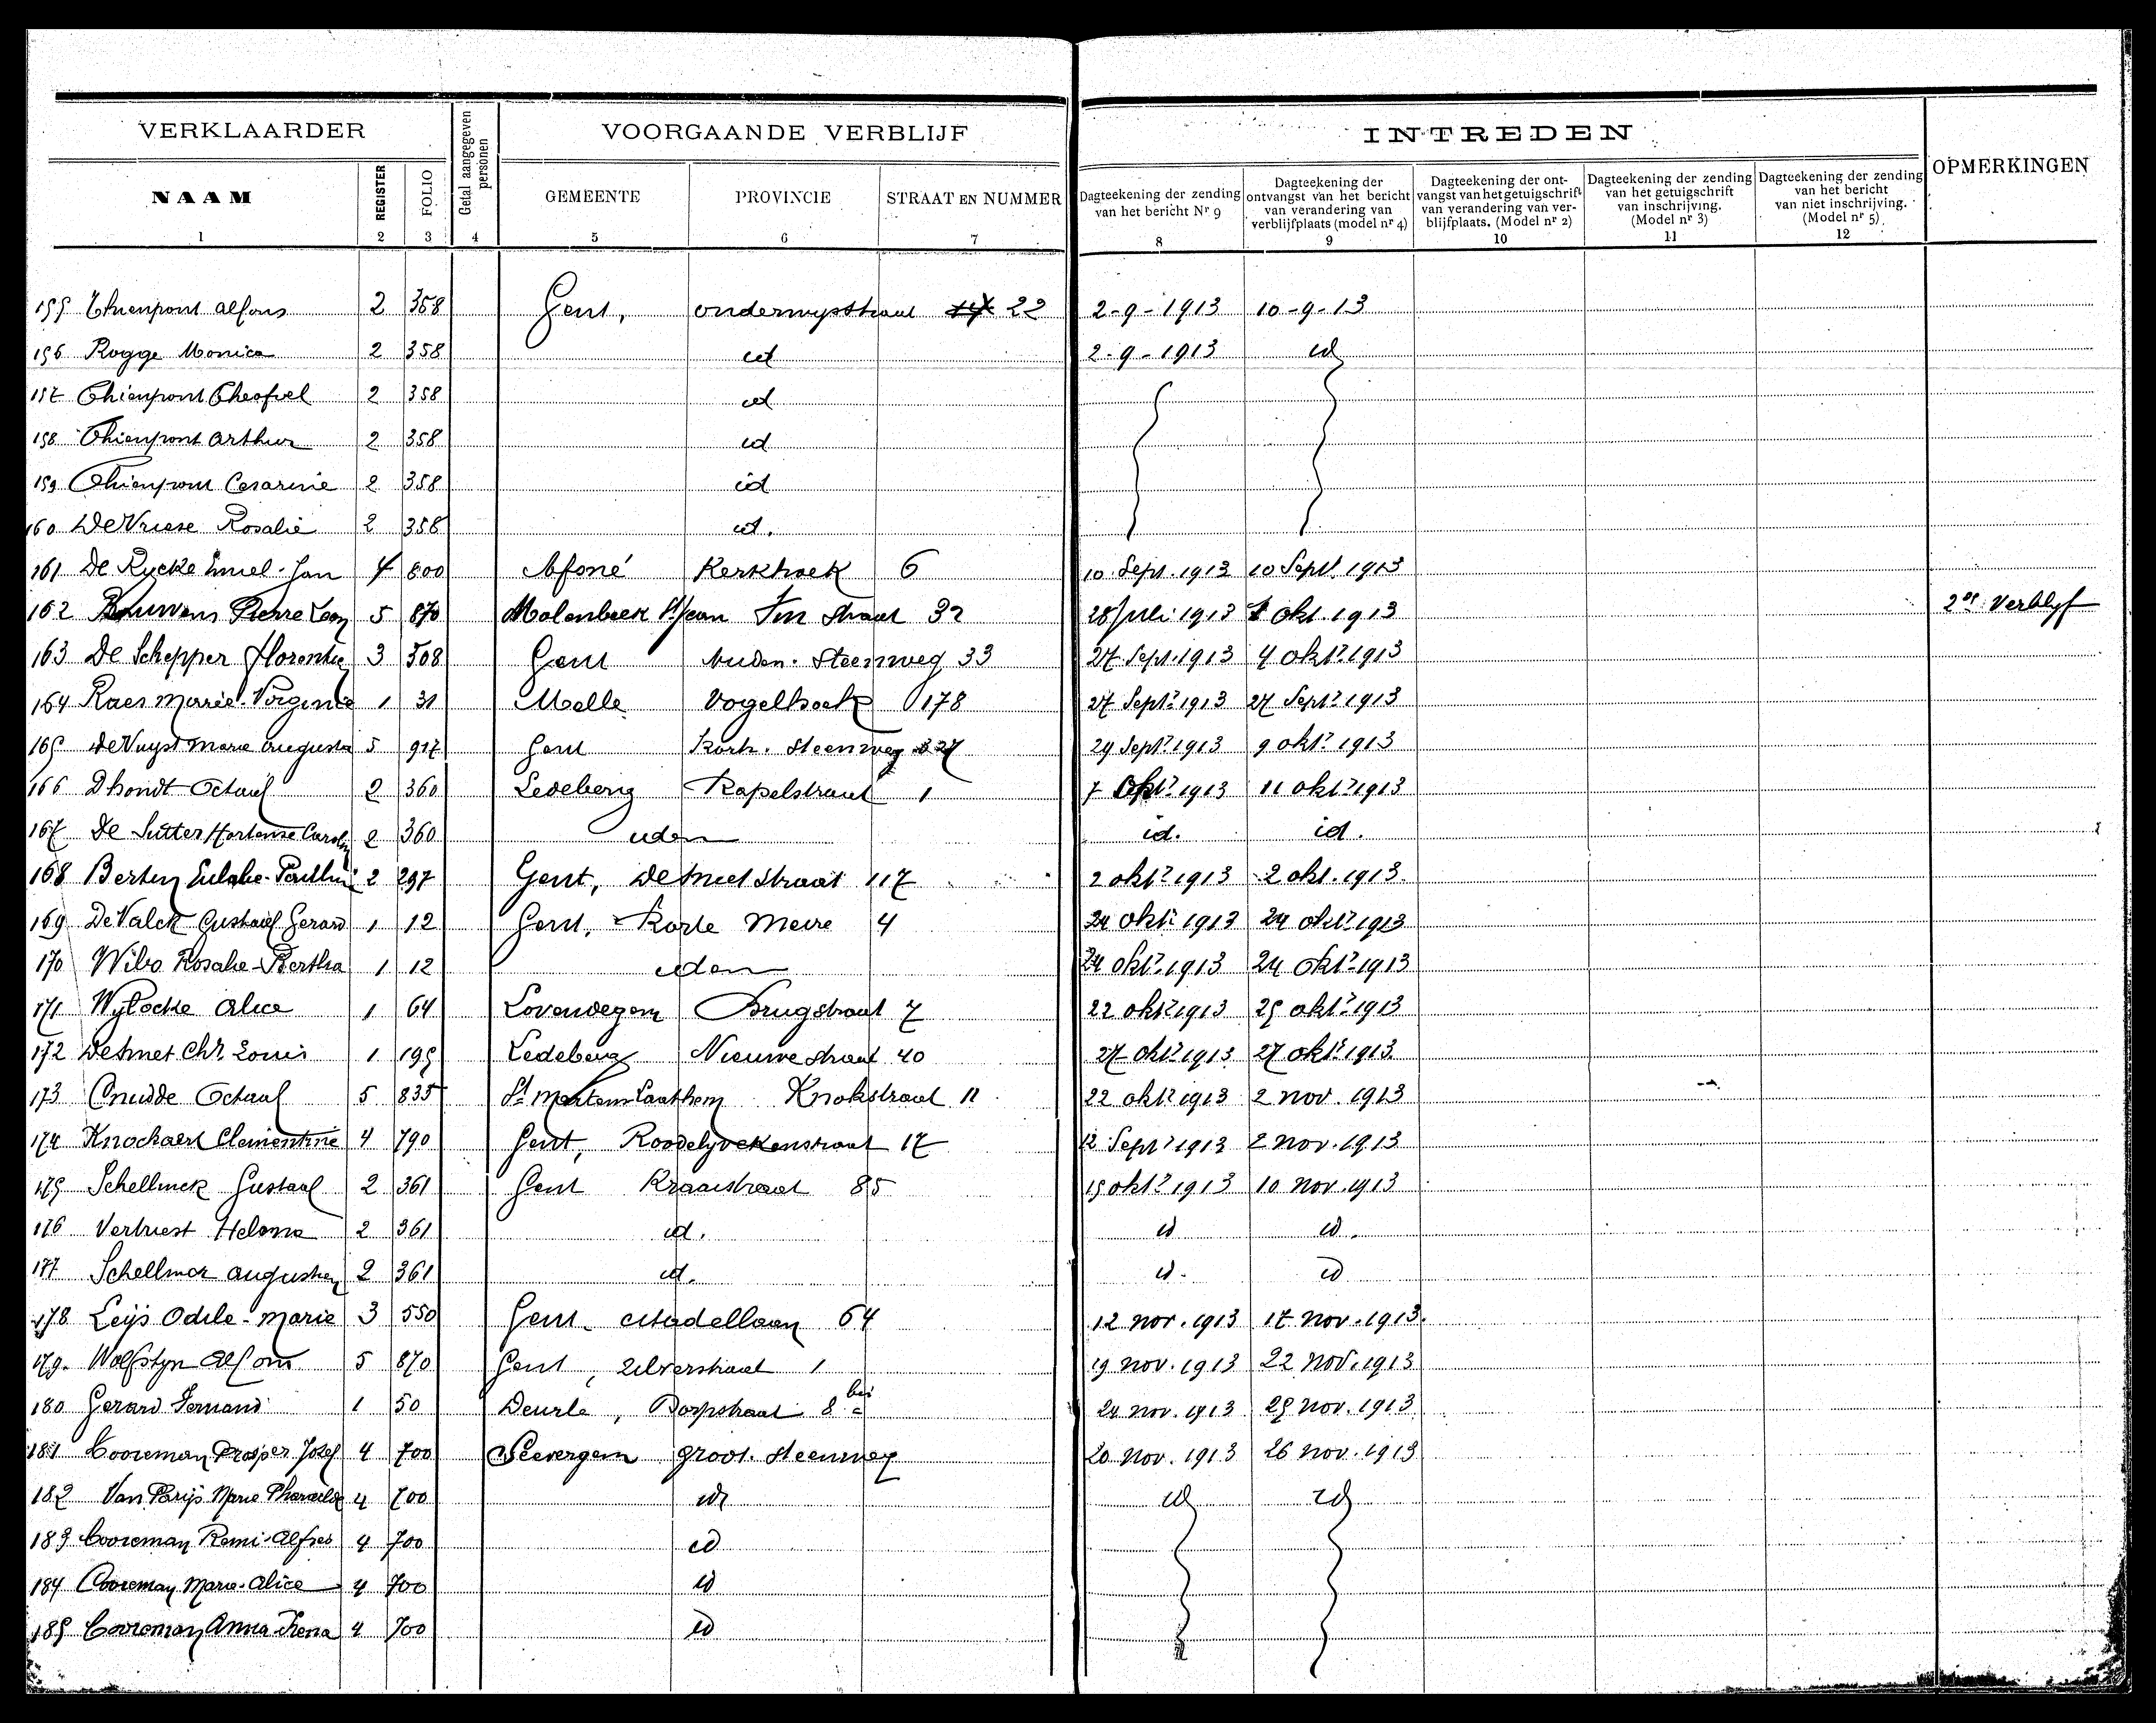 VERKLAARDER Getal aangegeven personen VOORGAANDE VERBLIJF INTREDEN OPMERKINGEN
NAAM REGISTER FOLIO GEMEENTE PROVINCIE STRAAT EN NUMMER Dagteekening der zending van het bericht Nr 9 Dagteekening der ontvangst van het bericht van verandering van verblijfplaats (model nr 4) Dagteekening der ont-vangst van het getuigschrift van verandering van ver-blijfplaats. (Model nr 2) Dagteekening der zending van het getuigschrift van inschrijving. (Model nr 3) Dagteekening der zending van het bericht van niet inschrijving. (Model nr 5)
1 2 3 4 5 6 7 8 9 10 11 12
155 Thienpont Alfons 2 358 Gent, onderwijsstraat 22 2-9-1913 10-9-13
156 Rogge Monica 2 358 id 2-9-1913 id
157 Thienpont Theofiel 2 358 id
158 Thienpont Arthur 2 358 id
159 Thienpont Cesarine 2 358 id
160 De Vriese Rosalie 2 358 id.
161 De Rycke Emiel-Jan 4 800 Afsné Kerkhoek 6 10 Sept. 1913 10 Sept. 1913
162 Bauwens Pierre Leon 5 870 Molenbeek St Jean straat 32 28 Juli 1913 1 okt. 1913 2de Verblyf
163 De Schepper Florentin 3 508 Gent Steenweg 33 27 Sept. 1913 4 okt. 1913
164 Raes Marie-Virginie 1 31 Melle Vogelhoek 178 27 Sept. 1913 27 Sept. 1913
165 De Vuyst Marie Augusta 5 917 Gent Kortr. Steenweg 327 29 Sept. 1913 9 okt. 1913
166 Dhondt Octaaf 2 360 Ledeberg Kapelstraat 1 7 Okt. 1913 11 okt. 1913
167 De Sutter Hortense 2 360 idem id. id.
168 Berten Eulalie-Pauline 2 297 Gent, De Smetstraat 117 2 okt. 1913 2 okt. 1913.
169 De Valck Gustaaf Gerard 1 12 Gent, Korte Meire 4 24 okt. 1913 24 okt. 1913
170 Wibo Rosalie-Bertha 1 12 idem 24 okt. 1913 24 okt. 1913
171 Wylocke Alice 1 64 Lovendegem Brugstraat 7 22 okt. 1913 25 okt. 1913
172 De Smet Chr. Louis 1 195 Ledeberg Nieuwe straat 40 27 okt. 1913 27 okt. 1913.
173 Cnudde Octaaf 5 835 St Martens Laathem Knokstraat 11 22 okt. 1913 2 nov. 1913
174 Knockaert Clementine 4 790 Gent, Roodelyvekenstraat 17 12 Sept. 1913 2 nov. 1913
175 Schellinck Gustaaf 2 361 Gent Kraaistraat 85 15 okt. 1913 10 nov. 1913
176 Vertriest Helena 2 361 id. id id.
177 Schellinck Augustien 2 361 id. id. id
178 Leijs Odile-Marie 3 550 Gent. citadellaan 64 12 nov. 1913 17 nov. 1913.
179. Wolfstyn Alfons 5 870 Gent, zilverstraat 1 19 nov. 1913 22 nov. 1913
180 Gerard Fernand 1 50 Deurle, Dorpstraat 8 bis 24 nov. 1913 25 nov. 1913
181 Cooreman Prosper Jozef 4 700 Seevergem groot. steenweg 20 nov. 1913 26 nov. 1913
182 Van Parijs Marie Pharailde 4 700 id id id
183 Cooreman Remi-Alfred 4 700 id
184 Cooreman Marie-Alice 4 700 id
185 Cooreman Anna Irena 4 700 id